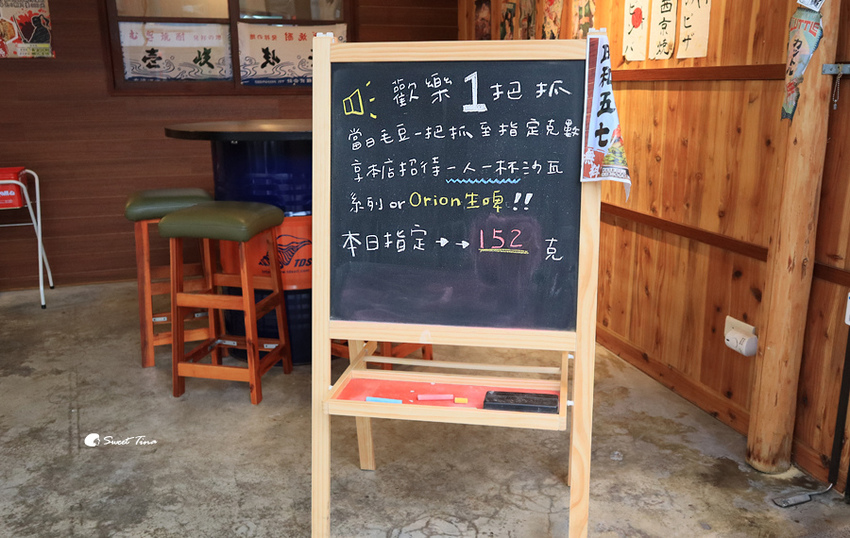 歡樂1把抓
當日毛豆一把抓至指定克數
享本店招待一人一杯沙瓦
系列or Orion生啤!!
本日指定→→152克
壹燒
西京燒
ピザ
昭和五七
Sweet Tina